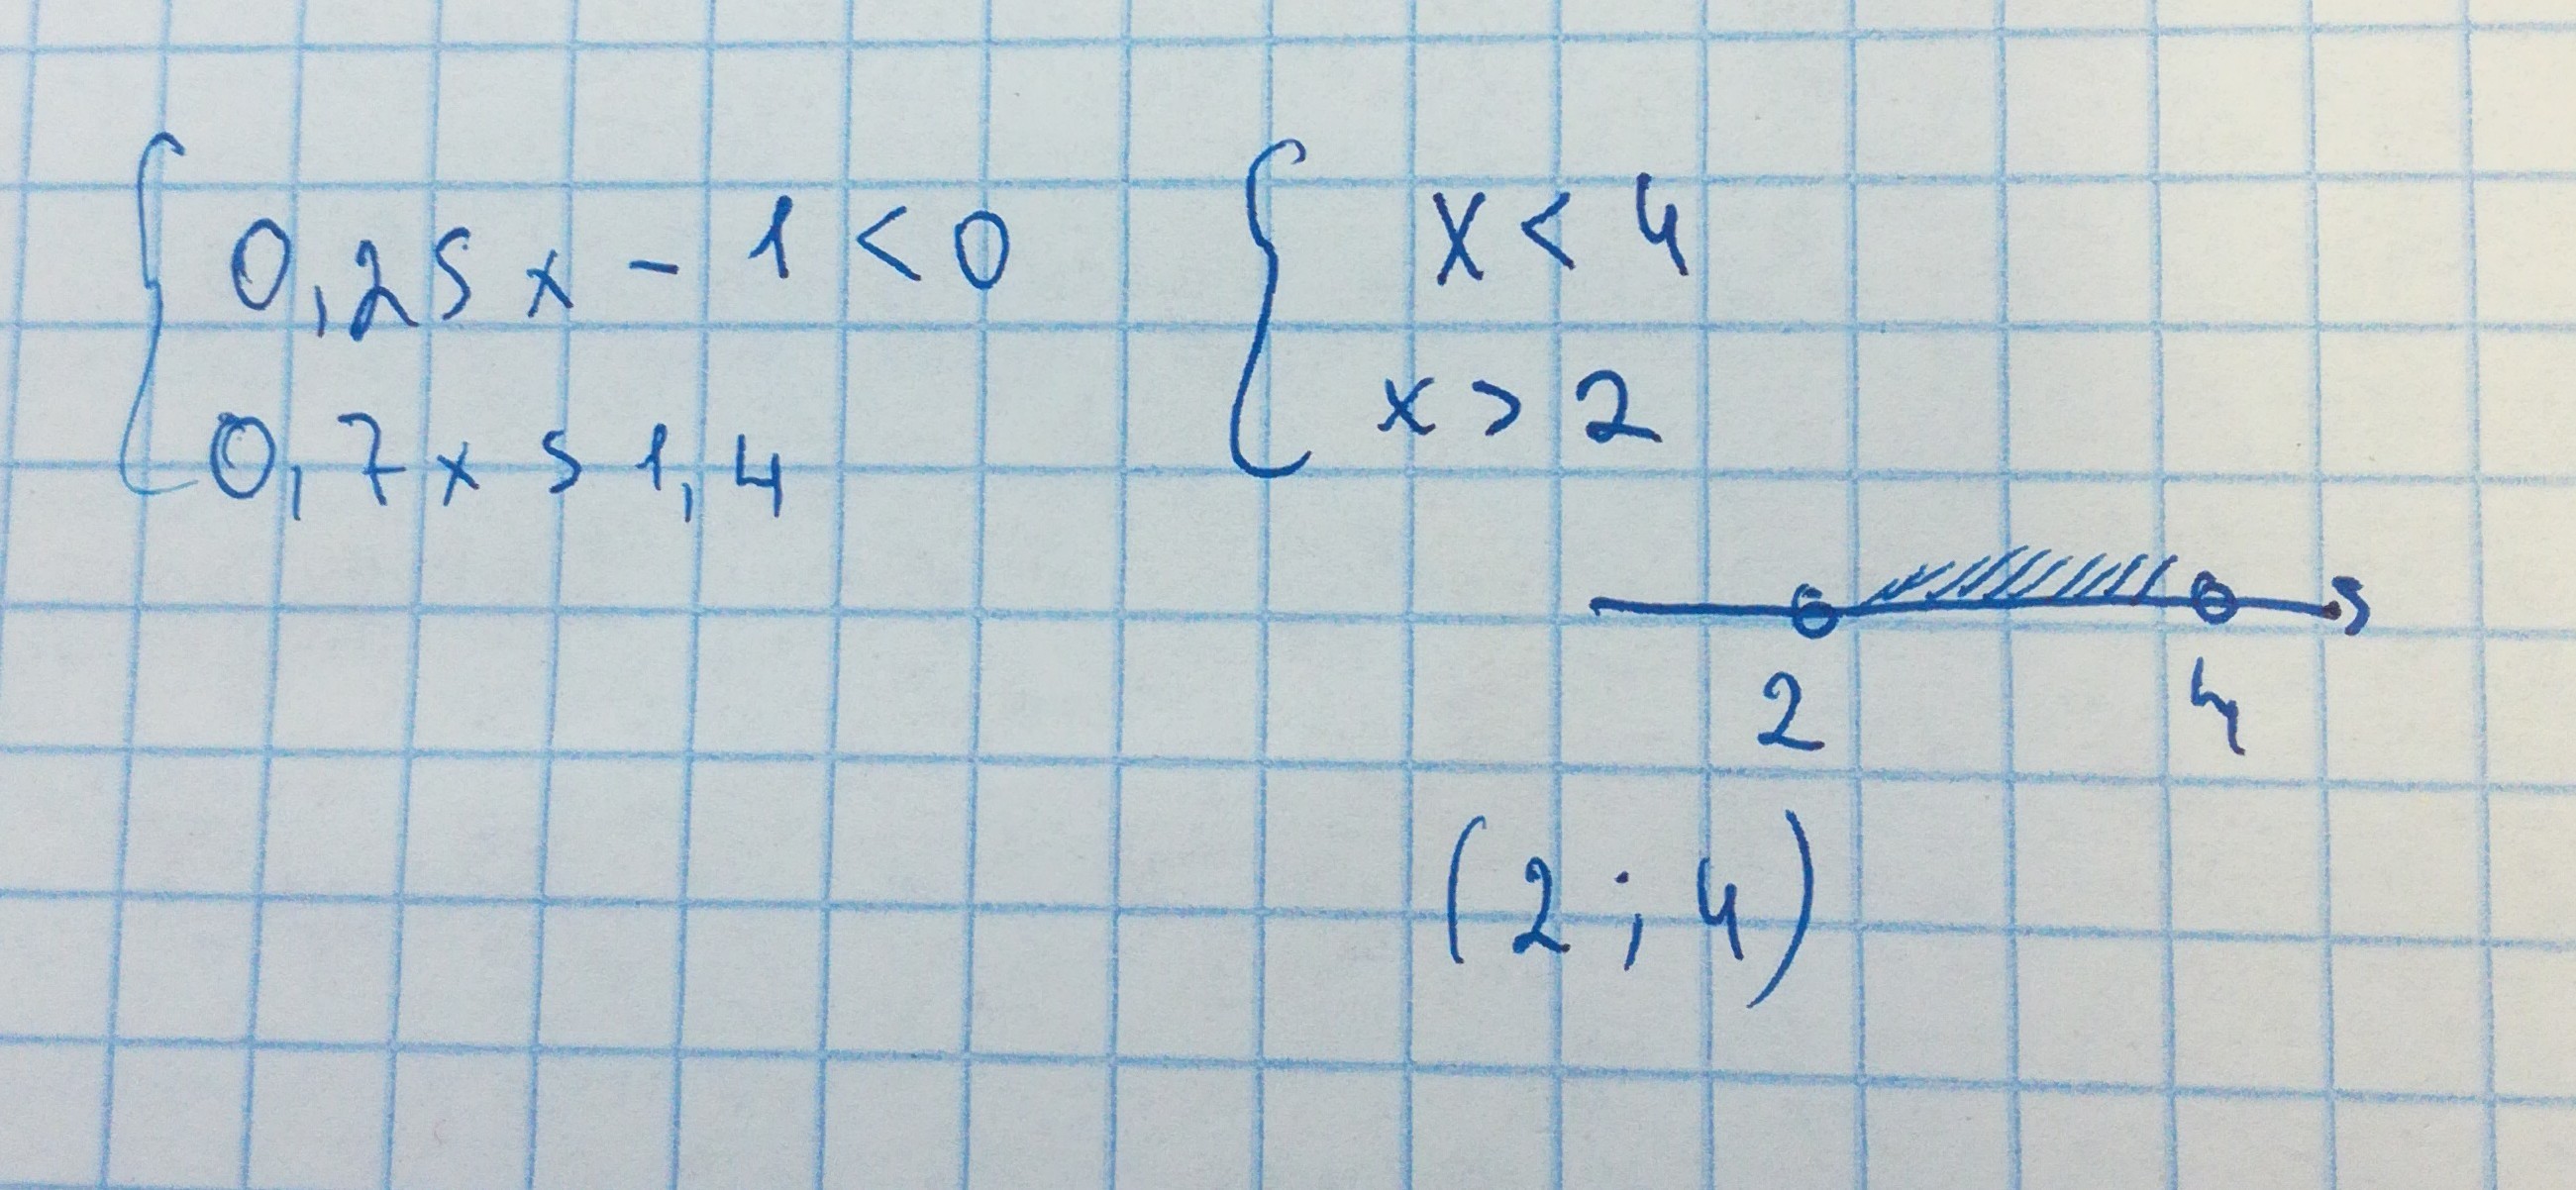 0,25x - 1 < 0
0,7x > 1,4
x < 4
x > 2
2 4
(2; 4)